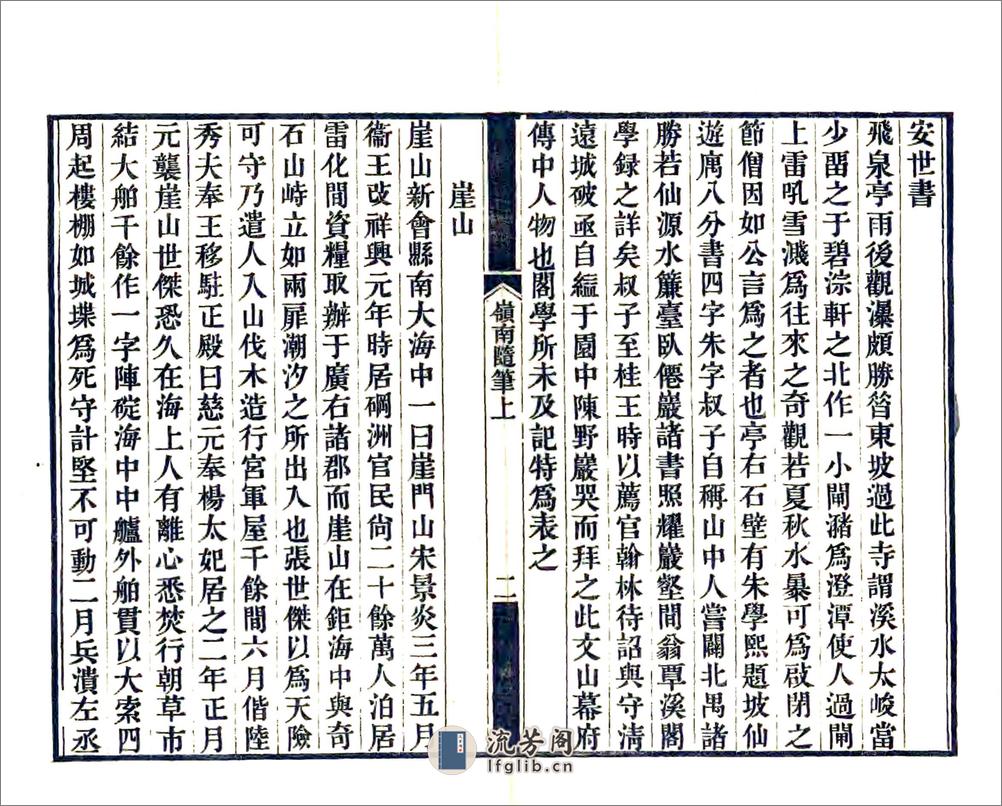 安世書
飛泉亭雨後觀瀑頗勝昝東坡過此寺謂溪水太峻當
少畱之于碧淙軒之北作一小閘瀦爲澄潭使人過閘
上雷吼雪濺爲往來之奇觀若夏秋水暴可爲啟閉之
節僧因如公言爲之者也亭右石壁有朱學熙題坡仙
遊寓八分書四字朱字叔子自稱山中人嘗闢北禺諸
勝若仙源水簾臺臥僊巖諸書照耀巖壑間翁覃溪閣
學録之詳矣叔子至桂王時以薦官翰林待詔與守淸
遠城破亟自縊于園中陳野巖哭而拜之此文山幕府
傳中人物也閣學所未及記特爲表之
嶺南隨筆上
二
崖山
崖山新會縣南大海中一曰崖門山宋景炎三年五月
衞王改祥興元年時居碙洲官民尙二十餘萬人泊居
雷化間資糧取辦于廣右諸郡而崖山在鉅海中與奇
石山峙立如兩扉潮汐之所出入也張世傑以爲天險
可守乃遣人入山伐木造行宮軍屋千餘間六月偕陸
秀夫奉王移駐正殿曰慈元奉楊太妃居之二年正月
元襲崖山世傑恐久在海上人有離心悉焚行朝草市
結大舶千餘作一字陣碇海中中艫外舶貫以大索四
周起樓棚如城堞爲死守計堅不可動二月兵潰左丞
流芳阁
lfglib.cn